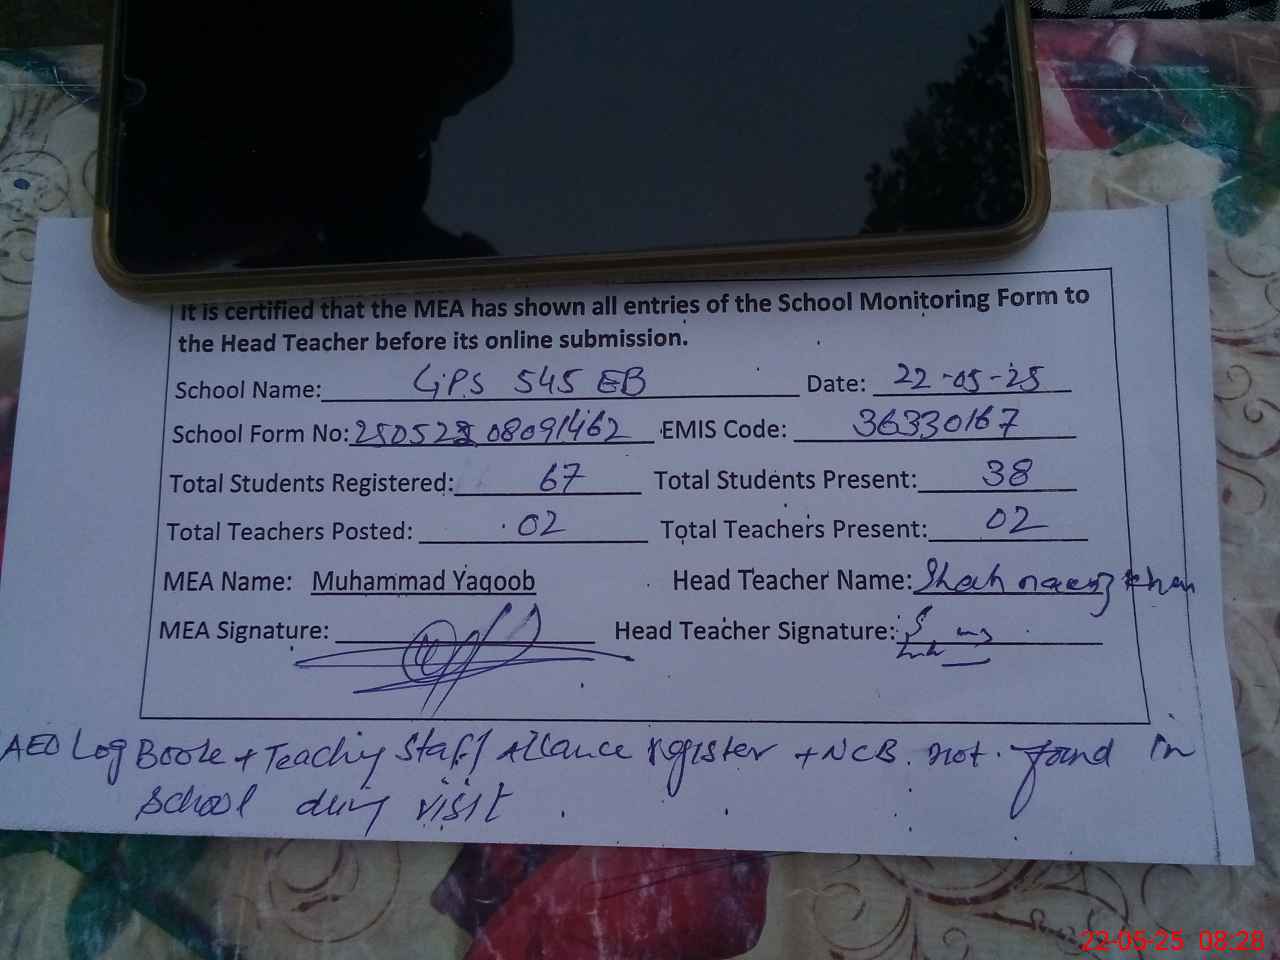 It is certified that the MEA has shown all entries of the School Monitoring Form to
the Head Teacher before its online submission.
School Name: GPS 545 EB Date: 22-05-25
School Form No: 25052208091462 EMIS Code: 36330167
Total Students Registered: 67 Total Students Present: 38
Total Teachers Posted: 02 Total Teachers Present: 02
MEA Name: Muhammad Yaqoob Head Teacher Name: Shah nawaz khan
MEA Signature: Head Teacher Signature:
AEO Log Book + Teaching Staff Allance register + NCB. not found in
School during visit
22-05-25 08:28